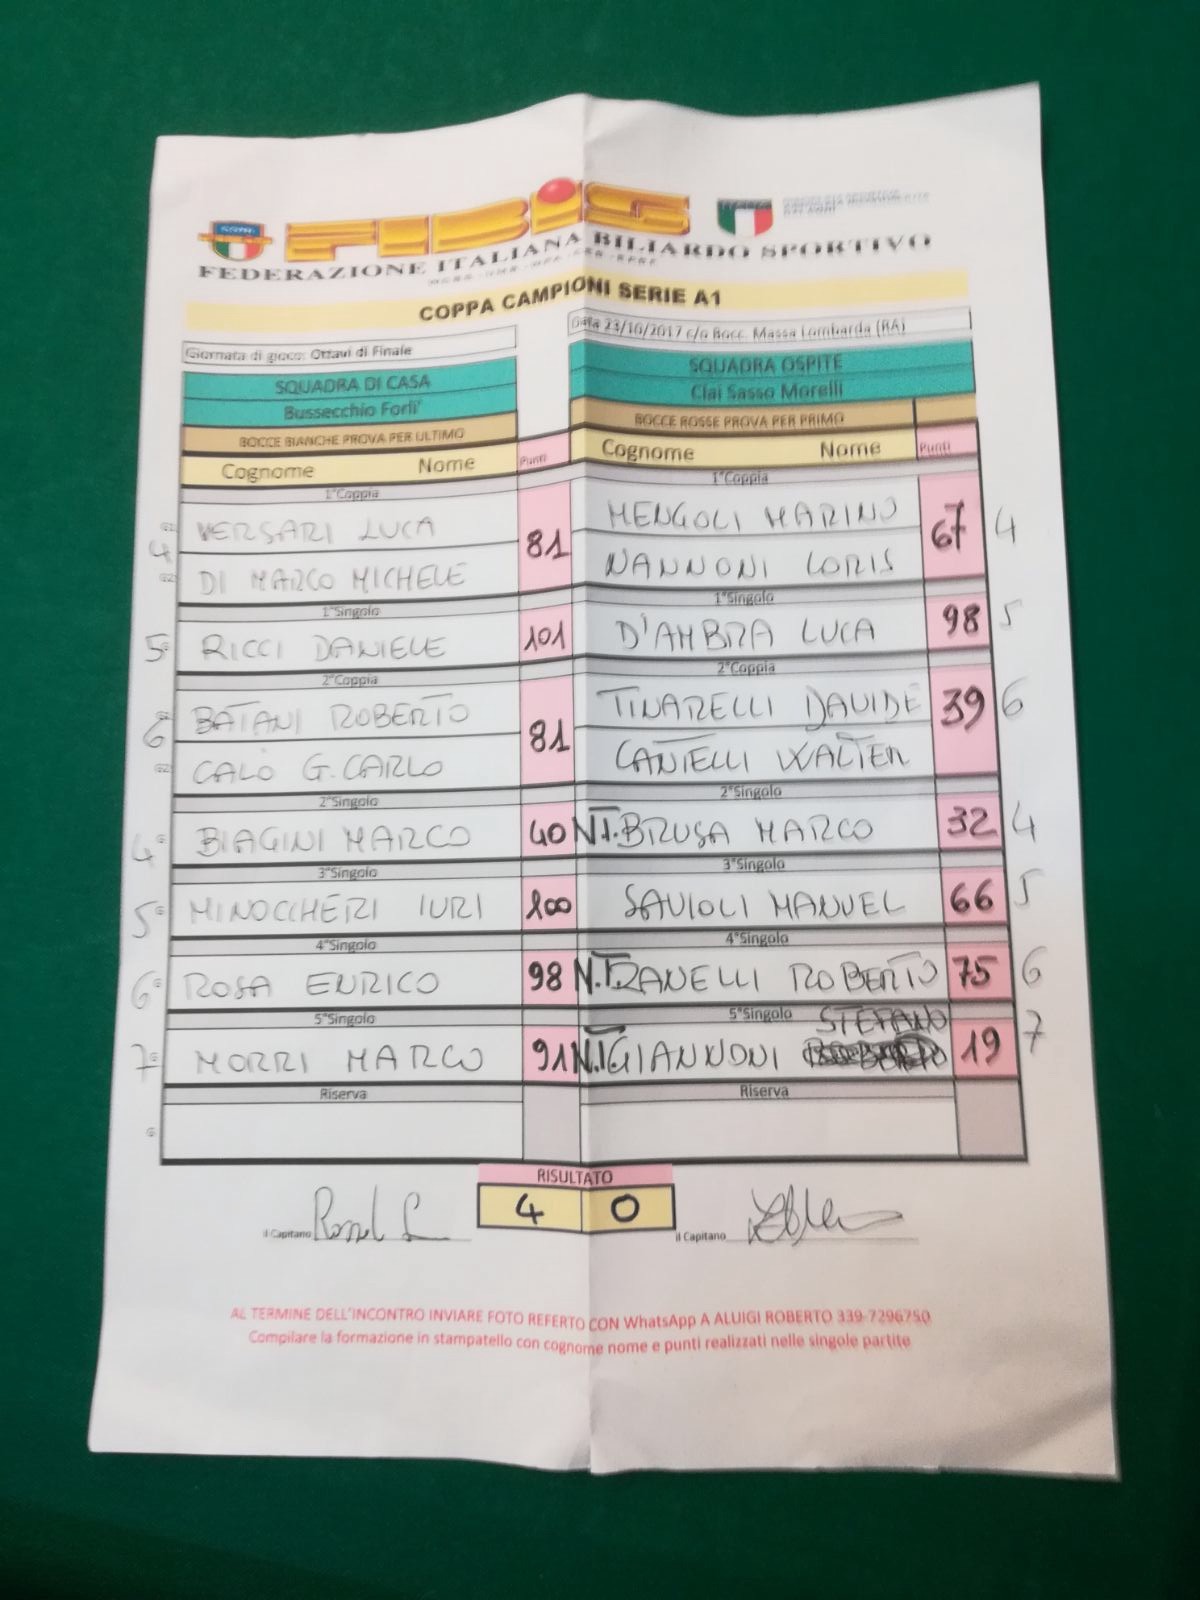 FIBiS
FEDERAZIONE ITALIANA BILIARDO SPORTIVO
COPPA CAMPIONI SERIE A1
Giornata di gioco: Ottavi di Finale
Data 23/10/2017 c/o Bocc. Massa Lombarda (RA)
SQUADRA DI CASA SQUADRA OSPITE
Bussecchio Forli' Clai Sasso Morelli
BOCCE BIANCHE PROVA PER ULTIMO BOCCE ROSSE PROVA PER PRIMO
Cognome Nome Punti Cognome Nome Punti
1°Coppia 1°Coppia
4 VERSARI LUCA 81 MENGOLI MARINO 67 4
DI MARCO MICHELE NANNONI LORIS
1°Singolo 1°Singolo
5 RICCI DANIELE 101 D'AMBRA LUCA 98 5
2°Coppia 2°Coppia
6 BATANI ROBERTO 81 TINARELLI DAVIDE 39 6
CALÒ G. CARLO CANTELLI WALTER
2°Singolo 2°Singolo
4 BIAGINI MARCO 40 N.T. BRUSA MARCO 32 4
3°Singolo 3°Singolo
5 MINOCCHERI IURI 100 SAVIOLI MANUEL 66 5
4°Singolo 4°Singolo
6 ROSA ENRICO 98 N.T. RANELLI ROBERTO 75 6
5°Singolo 5°Singolo STEFANO
7 MORRI MARCO 91 N.T. GIANNONI 19 7
Riserva Riserva
RISULTATO
il Capitano 4 0 il Capitano
AL TERMINE DELL'INCONTRO INVIARE FOTO REFERTO CON WhatsApp A ALUIGI ROBERTO 339-7296750
Compilare la formazione in stampatello con cognome nome e punti realizzati nelle singole partite